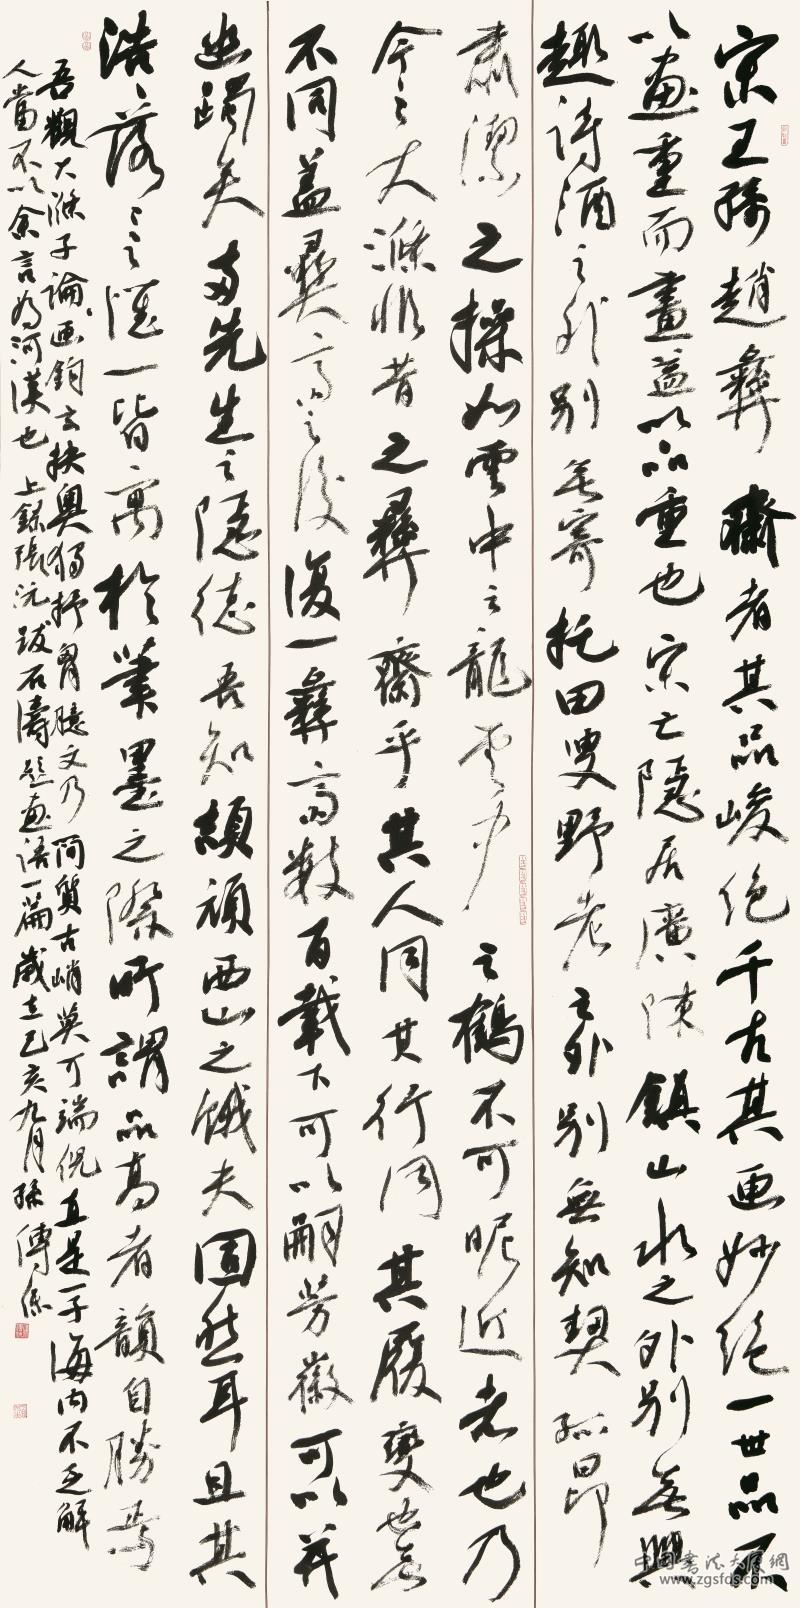 宋王孫趙彝齋者其品峻絕千古其画妙絕一世品不
以畫重而畫益以品重也宋亡隱居廣陳鎮山水之外別無興
趣詩酒之外別無寄托田叟野老之外別無知契孤昂
肅潔之操如雲中之龍雲中之鶴不可昵近者也乃
今之大滌非昔之彝齋乎其人同其行同其履變也無
不同蓋彝齋之後復一彝齋數百載下可以嗣芳徽可以並
幽躅矣兩先生之隱德吾知頡頏西山之餓夫固然耳且其
浩浩落落之懷一皆寓於筆墨之際所謂品高者韻自勝焉
吾觀大滌子論画鈎玄抉奧獨抒胷臆文乃簡質古峭莫可端倪直是一子海内不乏解
人當不以余言為河漢也 上錄張沅跋石濤題畫語一篇歲在己亥九月孫傳
中国书法大展网
www.zgsfds.com